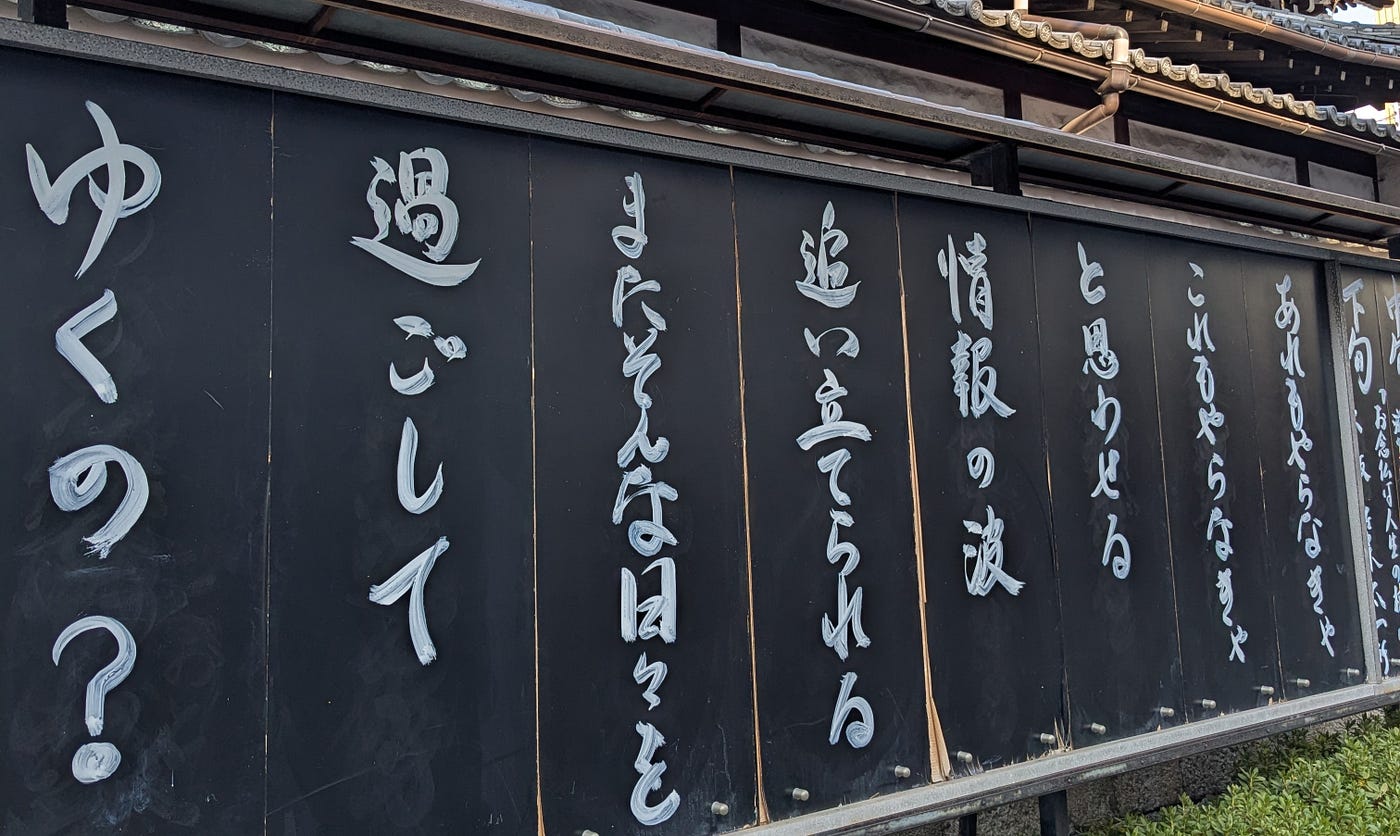 下旬
あれもやらなきゃ
これもやらなきゃ
と思わせる
情報の波
追い立てられる
まだそんな日々を
過ごして
ゆくの?